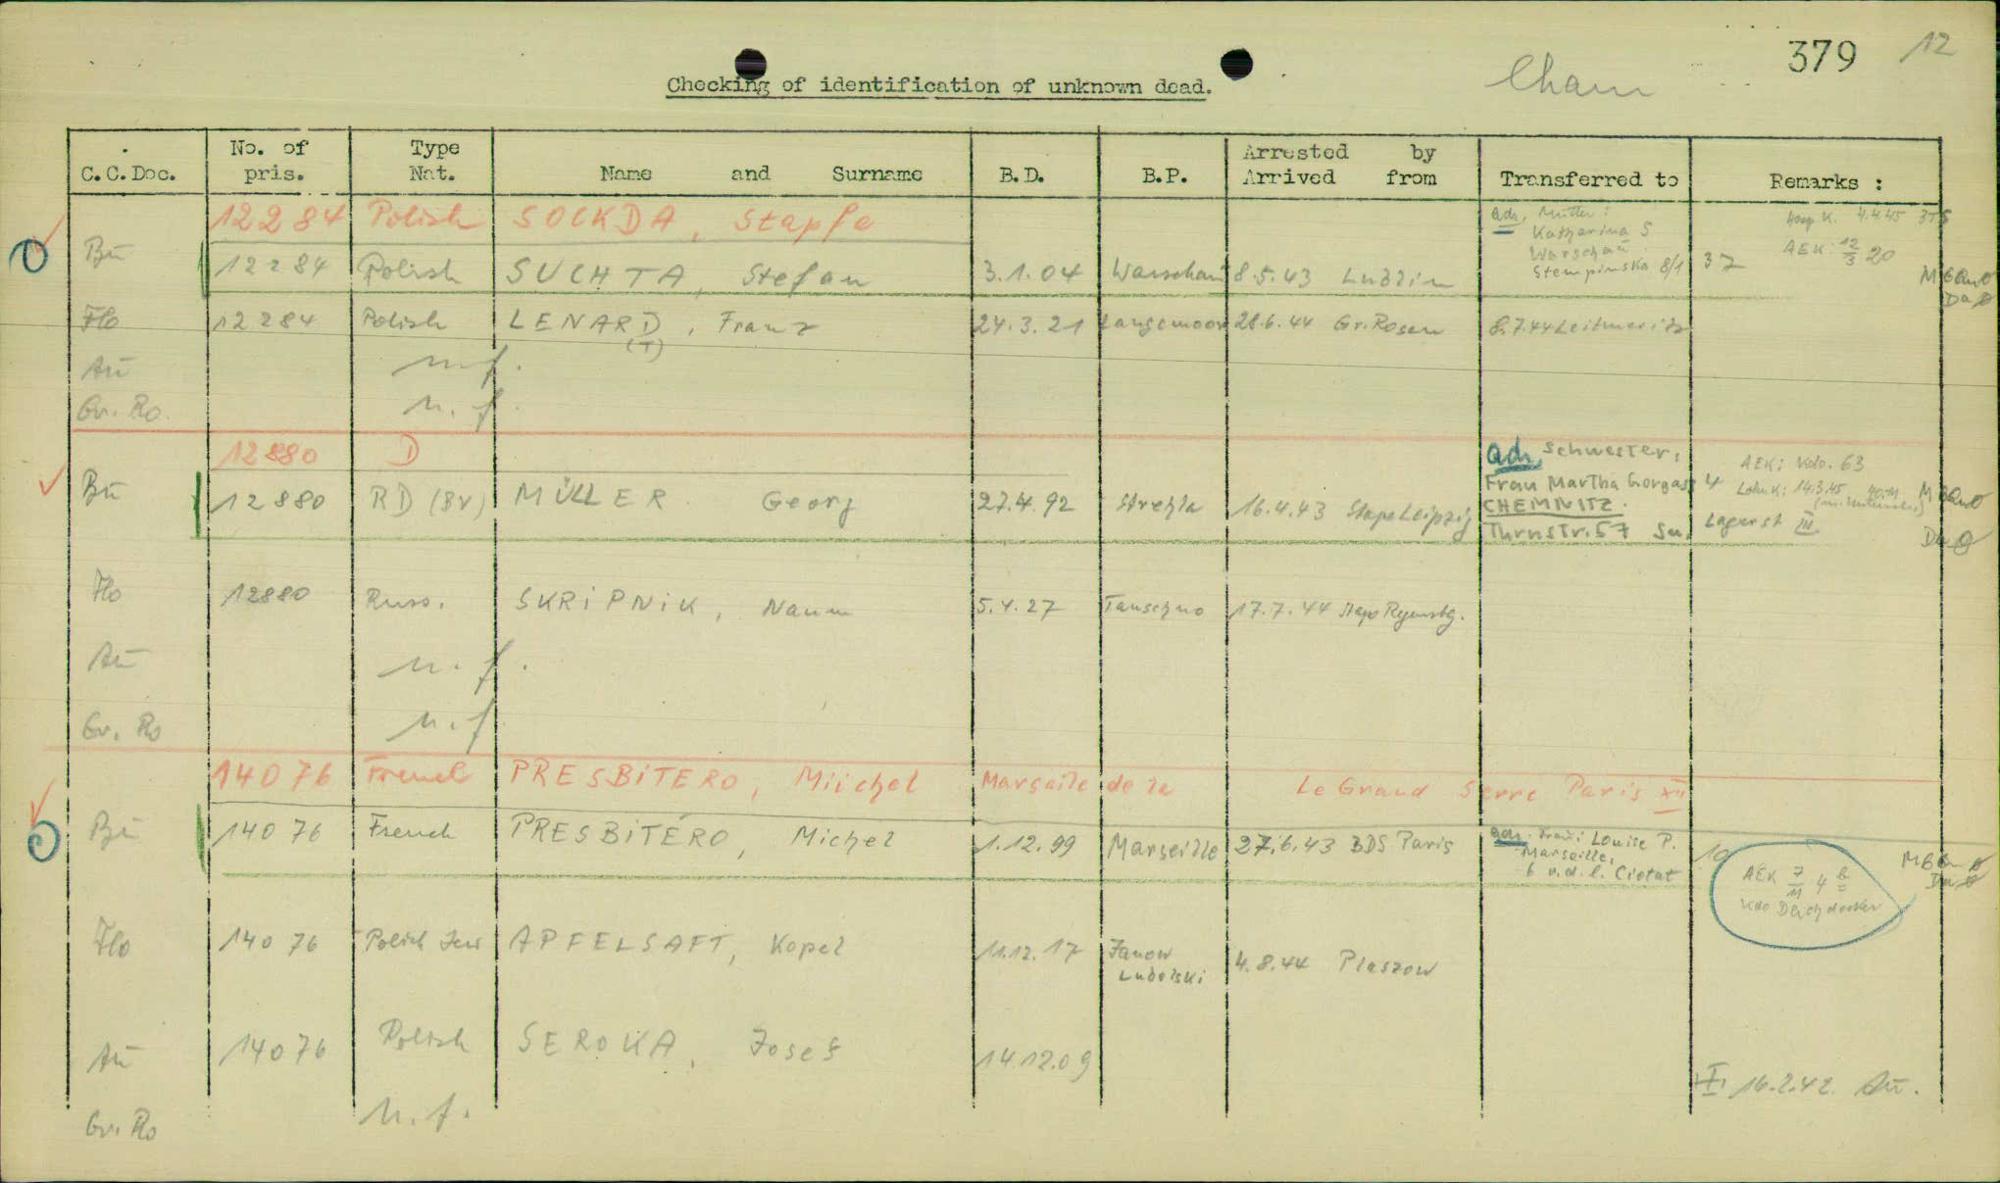 379 12
Cham
Checking of identification of unknown dead.
C.C.Doc. No. of pris. Type Nat. Name and Surname B.D. B.P. Arrested by Arrived from Transferred to Remarks :
12284 Polish SOCKDA, Stapfe
Bu 12284 Polish SUCHTA, Stefan 3.1.04 Warschau 8.5.43 Lublin
adr. Mutter:
Katharina S
Warschau
Stempinska 8/1
37
Hosp K. 4.4.45
AEK: 12/3 20
Flo 12284 Polish LENARD, Franz 24.3.21 Langemoor 28.6.44 Gr.Rosen 8.7.44 Leitmeritz
(T)
Au n.f.
Gr. Ro. n.f.
12880 D
Bu 12880 RD (BV) MÜLLER Georg 27.4.92 Strehla 16.4.43 Stapo Leipzig
adr. Schwester:
Frau Martha Gorgass
CHEMNITZ.
Thrnstr.57
4
AEK: Kdo. 63
Lohn K: 14.3.45
Lagerst III
Flo 12880 Russ. SKRIPNIK, Naum 5.4.27 Tauschno 17.7.44 Stapo Regensbg.
Au n.f.
Gr. Ro n.f.
14076 French PRESBITERO, Miichel Marseile de la Le Grand Serre Paris XII
Bu 14076 French PRESBITÉRO, Michel 1.12.99 Marseille 27.6.43 BDS Paris
adr. Frau: Louise P.
Marseille,
6 v.d.l. Ciotat
10
AEK 7/11 4
Kdo Dachdecker
Flo 14076 Polish Jew APFELSAFT, Kopel 11.12.17 Janow Lubelski 4.8.44 Plaszow
Au 14076 Polish SEROKA, Josef 14.12.09
16.2.42. Au.
Gr. Ro n.f.